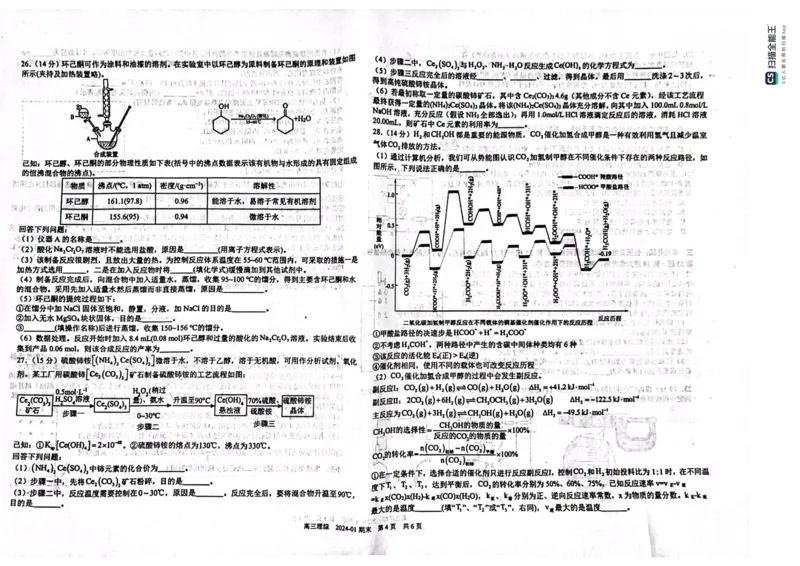 26.(14分)环己酮可作为涂料和油漆的溶剂。在实验室中以环己醇为原料制备环己酮的原理和装置如图
所示(夹持及加热装置略)。
B
A
合成装置
OH
O
+H₂O
已知:环己醇、环己酮的部分物理性质如下表(括号中的沸点数据表示该有机物与水形成的具有固定组成
的恒沸混合物的沸点)。
物质 沸点/(℃, 1 atm) 密度/(g·cm⁻³) 溶解性
环己醇 161.1(97.8) 0.96 能溶于水,易溶于常见有机溶剂
环己酮 155.6(95) 0.94 微溶于水
回答下列问题:
(1)仪器A的名称是
(2)酸化Na₂Cr₂O₇溶液时不能选用盐酸,原因是______(用离子方程式表示)。
(3)该制备反应很剧烈,且放出大量的热。为控制反应体系温度在55~60℃范围内,可采取的措施一是
加热方式选用______,二是在加入反应物时将______(填化学式)缓慢滴加到其他试剂中。
(4)制备反应完成后,向混合物中加入适量水,蒸馏,收集95~100℃的馏分,得到主要含环己酮和水
的混合物。采用先加入适量水然后蒸馏而非直接蒸馏,原因是______。
(5)环己酮的提纯过程如下:
①在馏分中加NaCl固体至饱和,静置,分液,加NaCl的目的是______。
②加入无水MgSO₄块状固体,目的是______。
③______(填操作名称)后进行蒸馏,收集150~156℃的馏分。
(6)数据处理。反应开始时加入8.4 mL(0.08 mol)环己醇和过量的酸化的Na₂Cr₂O₇溶液,实验结束后收
集到产品0.06 mol,则该合成反应的产率为______。
27.(15分)硫酸铈铵[(NH₄)₂Ce(SO₄)₃]微溶于水,不溶于乙醇,溶于无机酸,可用作分析试剂、氧化
剂。某工厂用碳酸铈[Ce₂(CO₃)₃]矿石制备硫酸铈铵的工艺流程如图:
Ce₂(CO₃)₃矿石
0.5mol·L⁻¹ H₂SO₄溶液
步骤一
Ce₂(SO₄)₃
H₂O₂(稍过量)、氨水
0~30℃
步骤二
升温至90℃
Ce(OH)₄悬浊液
70%硫酸、硫酸铵
步骤三
硫酸铈铵晶体
已知:①Ksp[Ce(OH)₄]=2×10⁻⁴⁸。②硫酸铈铵的熔点为130℃,沸点为330℃。
回答下列问题:
(1)(NH₄)₂Ce(SO₄)₃中铈元素的化合价为______。
(2)步骤一中,先将Ce₂(CO₃)₃矿石粉碎,目的是______。
(3)步骤二中,反应温度需要控制在0~30℃,原因是______。反应完全后,要将混合物升温至90℃,
目的是______。
(4)步骤二中,Ce₂(SO₄)₃与H₂O₂、NH₃·H₂O反应生成Ce(OH)₄的化学方程式为______。
(5)步骤三反应完全后的溶液经______、______、过滤,得到晶体。最后用______洗涤2~3次后,
得到高纯硫酸铈铵晶体。
(6)若最初称取一定量的碳酸铈矿石,其中含Ce₂(CO₃)₃4.6g(其他成分不含Ce元素),经该工艺流程
最终获得一定量的(NH₄)₂Ce(SO₄)₃晶体。将该(NH₄)₂Ce(SO₄)₃晶体充分溶解,向其中加入100.0mL 0.8mol/L
NaOH溶液,充分反应(假设NH₃全部逸出);再用1.0mol/L HCl溶液滴定反应后的溶液,消耗HCl溶液
20.00mL。则矿石中Ce元素的利用率为______。
28.(14分)H₂和CH₃OH都是重要的能源物质,CO₂催化加氢合成甲醇是一种有效利用氢气且减少温室
气体CO₂排放的方法。
(1)通过计算机分析,我们可从势能图认识CO₂加氢制甲醇在不同催化条件下存在的两种反应路径,如
图所示,下列说法正确的是______。
COOH* 羧酸路径
HCOO* 甲酸盐路径
相对能量(eV)
1.0
0.5
0
-0.5
-0.19
反应历程
二氧化碳加氢制甲醇反应在不同载体的铜基催化剂催化作用下的反应历程
①甲酸盐路径的决速步是HCOO*+H*=H₂COO*
②不考虑H₂COH*,两种路径中产生的含碳中间体种类均有6种
③该反应的活化能Ea(正)>Ea(逆)
④催化剂相同,使用不同的载体也可改变反应历程
(2)CO₂催化加氢合成甲醇的过程中会发生副反应。
副反应Ⅰ:CO₂(g)+H₂(g)⇌CO(g)+H₂O(g) ΔH₁=+41.2 kJ·mol⁻¹
副反应Ⅱ:2CO₂(g)+6H₂(g)⇌CH₃OCH₃(g)+3H₂O(g) ΔH₂=-122.5 kJ·mol⁻¹
主反应为CO₂(g)+3H₂(g)⇌CH₃OH(g)+H₂O(g) ΔH₃=-49.5 kJ·mol⁻¹
CH₃OH的选择性=CH₃OH的物质的量/反应的CO₂的物质的量×100%
CO₂的转化率=n(CO₂)初始-n(CO₂)平衡/n(CO₂)初始×100%
①在一定条件下,选择合适的催化剂只进行反应副反应Ⅰ,控制CO₂和H₂初始投料比为1:1时,在不同温
度下T₁、T₂、T₃,达到平衡后,CO₂的转化率分别为50%、60%、75%,已知反应速率v=v正-v逆
=k正x(CO₂)x(H₂)-k逆x(CO)x(H₂O),k正、k逆分别为正、逆向反应速率常数,x为物质的量分数。k正-k逆
最大的是温度______(填“T₁”、“T₂”或“T₃”,右同),v逆最大的是温度______。
高三理综 2024-01期末 第4页 共6页
CS 扫描全能王